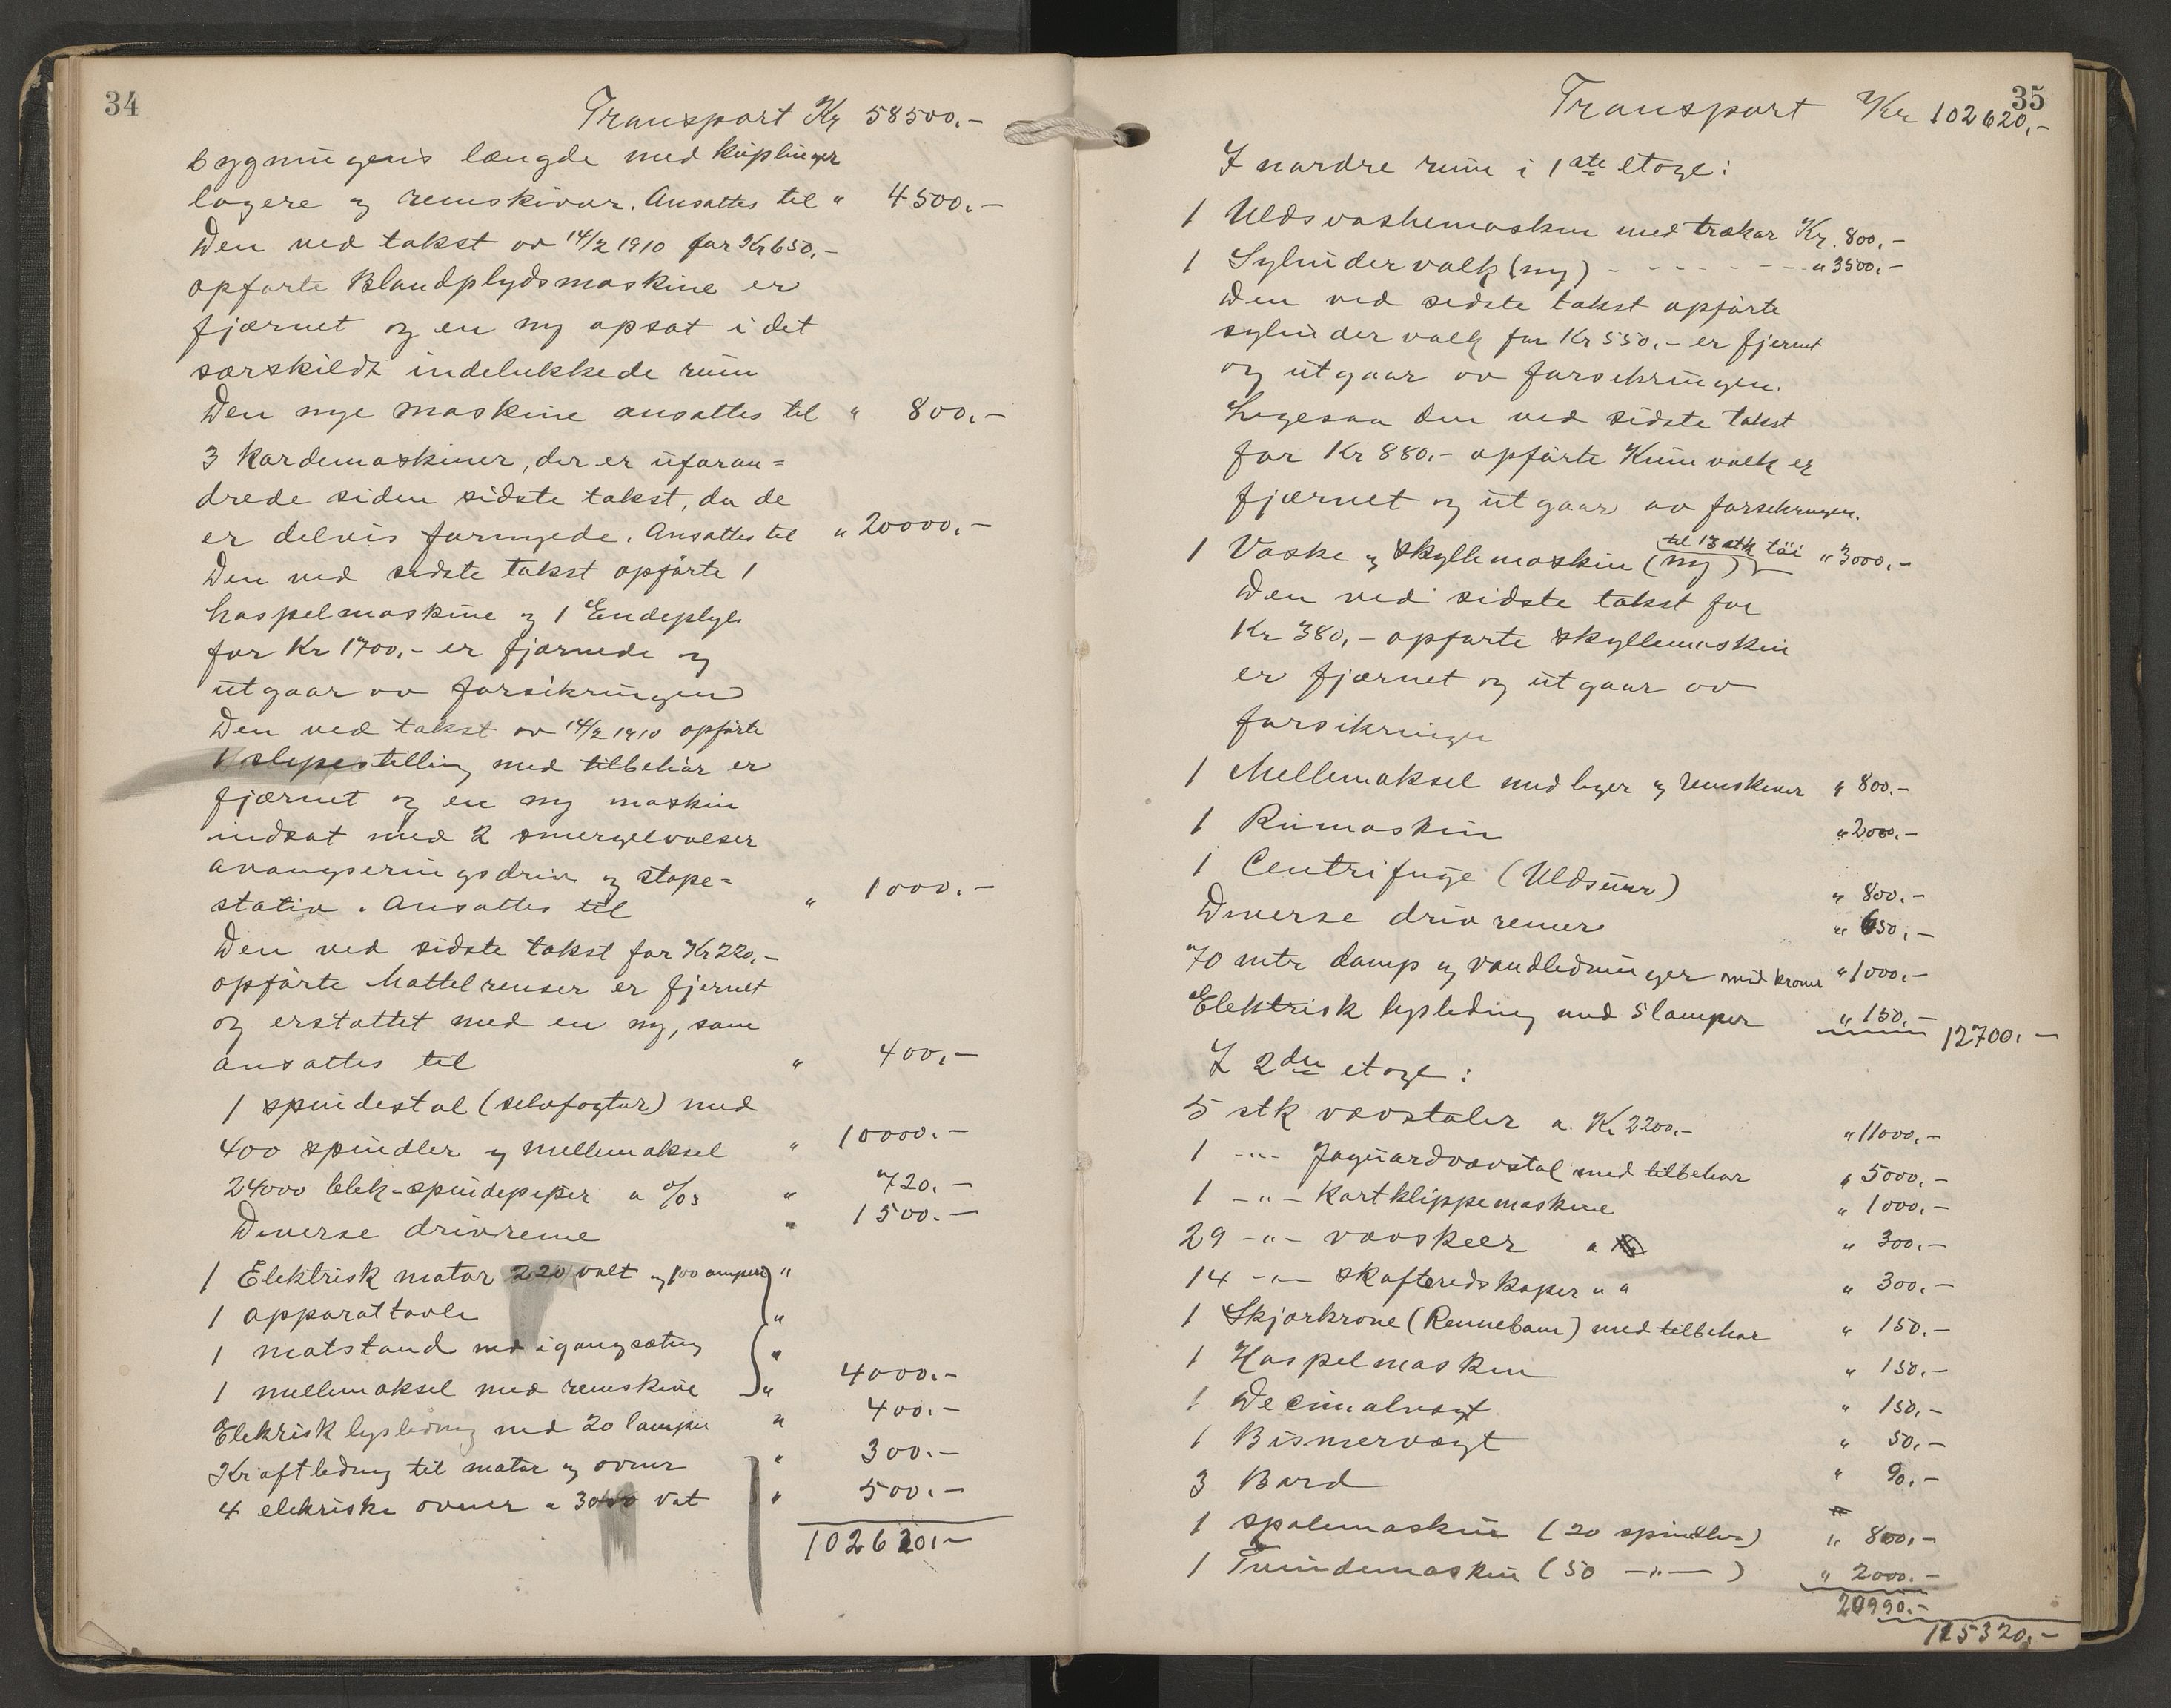 34
Transport Kr 58500.-
bygningens længde med koplinger
lagere og remskiver. Ansattes til " 4500.-
Den ved takst av 14/2 1910 for Kr 650,-
opførte Blandplydsmaskine er
fjærnet og en ny opsat i det
særskildt indelukkede rum
Den nye maskine ansattes til " 800.-
3 Kardemaskiner, der er uforan=
drede siden sidste takst, da de
er delvis fornyede. Ansattes til " 20000.-
Den ved sidste takst opførte 1
haspelmaskine og 1 Endeplyds
for Kr 1700.- er fjærnede og
utgaar av forsikringen
Den ved takst av 14/2 1910 opførte
1 slipestilling med tilbehør er
fjærnet og en ny maskin
indsat med 2 smergelvalser
avangseringsdriv og støpe=
stativ. Ansattes til " 1000.-
Den ved sidste takst for Kr 220,-
opførte Mattelrenser er fjernet
og erstattet med en ny, som
ansattes til " 400.-
1 spindestol (selvfagtor) med
400 spindler og mellemaksel " 10000.-
24000 blek-spindepiper a 0/03 " 720.-
Diverse drivreme " 1500.-
1 Elektrisk motor 220 volt og 100 amper "
1 apparattavle "
1 motstand med igangsætning "
1 mellemaksel med remskive " 4000.-
Elekrisk lysledning med 20 lamper " 400.-
Kraftledning til motor og ovner " 300.-
4 elekriske ovner a 3000 vat " 500.-
102620.-
35
Transport Kr 102620,-
I nordre rum i 1ste etage:
1 Uldsvaskemaskin med trækar Kr. 800.-
1 Sylindervalk (ny) - - - - - - - " 3500.-
Den ved sidste takst opførte
sylindervalk for Kr 550.- er fjernet
og utgaar av forsikringen.
Ligesaa den ved sidste takst
for Kr 880.- opførte Kumvalk er
fjærnet og utgaar av forsikringen.
til 13 stk tøi
1 Vaske og Skyllemaskin (ny) " 3000.-
Den ved sidste takst for
Kr 380,- opførte skyllemaskin
er fjærnet og utgaar av
forsikringen
1 Mellemaksel med lager og remskiver " 800.-
1 Rumaskin " 2000.-
1 Centrifuge (Uldsuer) " 800.-
Diverse drivremer " 650.-
70 mtr damp og vandledninger med kroner " 1000.-
Elektrisk lysledning med 5 lamper " 150.- 12700.-
I 2den etage:
5 stk vævstoler a. Kr 2200.- " 11000.-
1 -"- Jaquardvævstol med tilbehør " 5000.-
1 -"- Kortklippemaskine " 1000.-
29 -"- vævskeer a " 300.-
14 -"- skaftredskaper " " " 300.-
1 Skjærkrone (Rennebom) med tilbehør " 150.-
1 Haspelmaskin " 150.-
1 Decimalvegt " 150.-
1 Bismervægt " 50.-
3 Bord " 90.-
1 spolemaskin (20 spindler) " 800.-
1 Tvindemaskin (50 -"-) " 2000.-
20990.-
115320.-